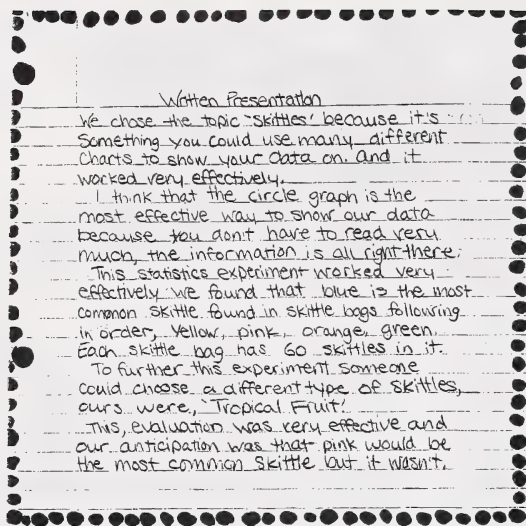 Written Presentation
We chose the topic 'Skittles' because it's
Something you could use many different
Charts to show your data on. and it
worked very effectively.
I think that the circle graph is the
most effective way to show our data
because you don't have to read very
much, the information is all right there.
This statistics experiment worked very
effectively we found that blue is the most
common skittle found in skittle bags following
in order, yellow, pink, orange, green.
Each skittle bag has 60 skittles in it.
To further this experiment someone
could choose a different type of skittles,
ours were, 'Tropical Fruit'
This, evaluation was very effective and
our anticipation was that pink would be
the most common skittle but it wasn't.